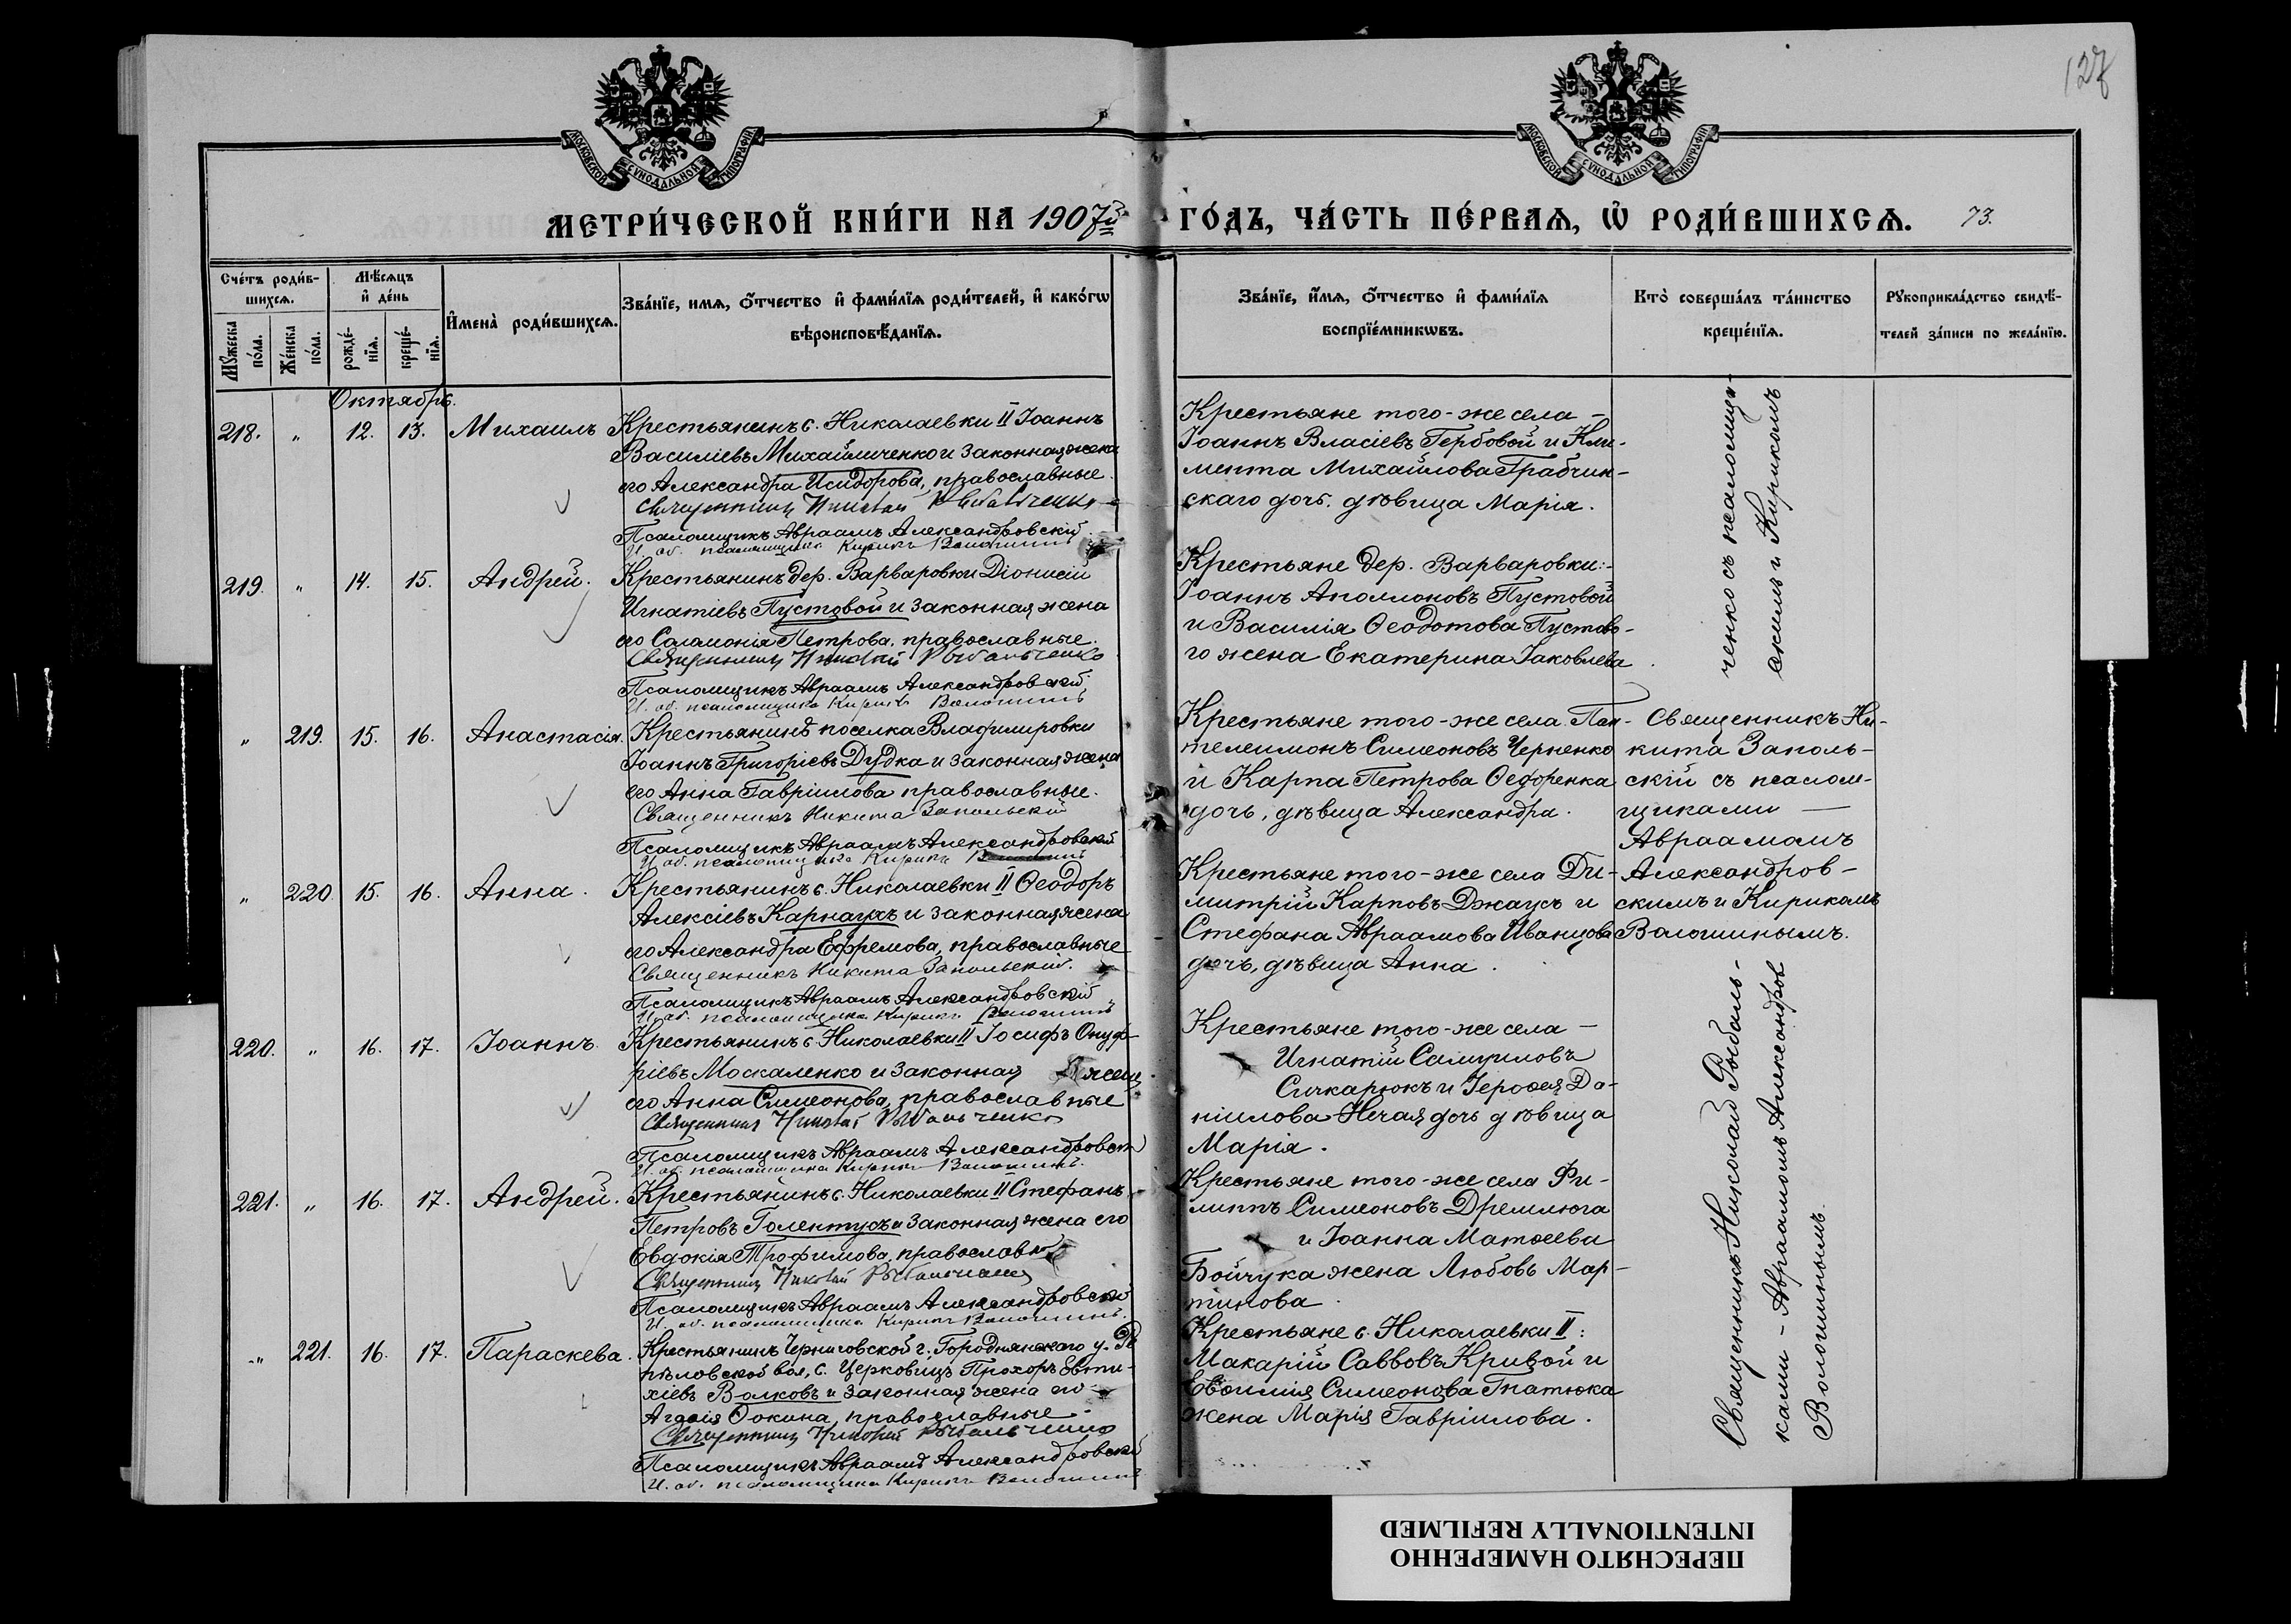 127
МОСКОВСКОЙ СѴНОДАЛЬНОЙ ТИПОГРАФІИ
МОСКОВСКОЙ СѴНОДАЛЬНОЙ ТИПОГРАФІИ
МЕТРИ́ЧЕСКОЙ КНИ́ГИ НА 1907й ГО́ДЪ, ЧА́СТЬ ПЕ́РВАѦ, Ѡ҆ РОДИ́ВШИХСѦ. 73.
Сче́тъ роди́в-
шихсѧ.
Мꙋ́жеска по́ла.
Же́нска по́ла.
Мѣ́сѧцъ
и҆ де́нь
рожде́-
нїѧ.
креще́-
нїѧ.
И҆мена̀ роди́вшихсѧ.
Зва́нїе, имѧ, ѻ҆́тчество и҆ фами́лїѧ роди́телей, и҆ како́гѡ
вѣроисповѣ́данїѧ.
Зва́нїе, и҆́мѧ, ѻ҆́тчество и҆ фами́лїѧ
воспрїе́мникѡвъ.
Кто̀ соверша́лъ та́инство
креще́нїѧ.
Рꙋкоприкла́дство свидѣ́-
телей за́писи по жела́нїю.
Октябрь.
218. " 12. 13. Михаилъ
Крестьянинъ с. Николаевки II Іоаннъ
Василіевъ Михайличенко и законная жена
его Александра Исидорова, православные.
Священникъ Николай Рыбальченко
Псаломщикъ Авраамъ Александровскій
И. об. псаломщика Кирикъ Волошинъ
Крестьяне того-же села -
Іоаннъ Власіевъ Гербовой и Кли-
мента Михайлова Грабчин-
скаго дочь. дѣвица Марія.
219. " 14. 15. Андрей.
Крестьянинъ дер. Варваровки Діонисій
Игнатіевъ Пустовой и законная жена
его Саломонія Петрова, православные.
Священникъ Николай Рыбальченко
Псаломщикъ Авраамъ Александровскій
И. об. псаломщика Кирикъ Волошинъ
Крестьяне дер. Варваровки:-
Іоаннъ Аполлоновъ Пустовой
и Василія Ѳеодотова Пустово-
го жена Екатерина Іаковлева.
" 219. 15. 16. Анастасія.
Крестьянинъ поселка Владимировки
Іоаннъ Григоріевъ Дудка и законная жена
его Анна Гавріилова православные.
Священникъ Никита Запольскій
Псаломщикъ Авраамъ Александровскій
И. об. псаломщика Кирикъ Волошинъ
Крестьяне того-же села Пан-
телеимонъ Симеоновъ Черненко
и Карпа Петрова Ѳедоренка
дочь, дѣвица Александра.
" 220. 15. 16. Анна.
Крестьянинъ с. Николаевки II Ѳеодоръ
Алексіевъ Карнаухъ и законная жена
его Александра Ефремова, православные
Священникъ Никита Запольскій.
Псаломщикъ Авраамъ Александровскій
И. об. псаломщика Кирикъ Волошинъ
Крестьяне того-же села Ди-
митрій Карповъ Джаусъ и
Стефана Авраамова Иванцова
дочь, дѣвица Анна.
220. " 16. 17. Іоаннъ.
Крестьянинъ с. Николаевки II Іосифъ Онуф-
ріевъ Москаленко и законная жена
его Анна Симеонова, православные
Священникъ Николай Рыбальченко
Псаломщикъ Авраамъ Александровскій
И. об. псаломщика Кирикъ Волошинъ.
Крестьяне того-же села -
Игнатій Самуиловъ
Сичкарюкъ и Іероѳея Да-
ніилова Нечая дочь дѣвица
Марія.
221. " 16. 17. Андрей.
Крестьянинъ с. Николаевки II Стефанъ
Петровъ Голентусъ и законная жена его
Евдокія Трофимова, православные
Священникъ Николай Рыбальченко
Псаломщикъ Авраамъ Александровскій
И. об. псаломщика Кирикъ Волошинъ.
Крестьяне того-же села Фи-
липпъ Симеоновъ Дремлюга
и Іоанна Матѳеева
Бойчука жена Любовь Мар-
тинова.
" 221. 16. 17. Параскева.
Крестьянинъ Черниговской г. Городнянскаго у. Ре
пьловской вол, с. Церковищъ Прохоръ Евти-
хіевъ Волковъ и законная жена его
Агаѳія Ѳокина, православные.
Священникъ Николай Рыбальченко
Псаломщикъ Авраамъ Александровскій
И. об. псаломщика Кирикъ Волошинъ
Крестьяне с. Николаевки II:
Макарій Саввовъ Кривой и
Евѳимія Симеонова Гнатюка
жена Марія Гавріилова.
ченко съ псаломщи-
скимъ и Кирикомъ
Священникъ Ни-
кита Заполь-
скій съ псалом-
щиками
Авраамомъ
Александров-
скимъ и Кирикомъ
Волошинымъ.
Священникъ Николай Рыбаль-
ками - Авраамомъ Александров
Волошинымъ.
ПЕРЕСНЯТО НАМЕРЕННО
INTENTIONALLY REFILMED